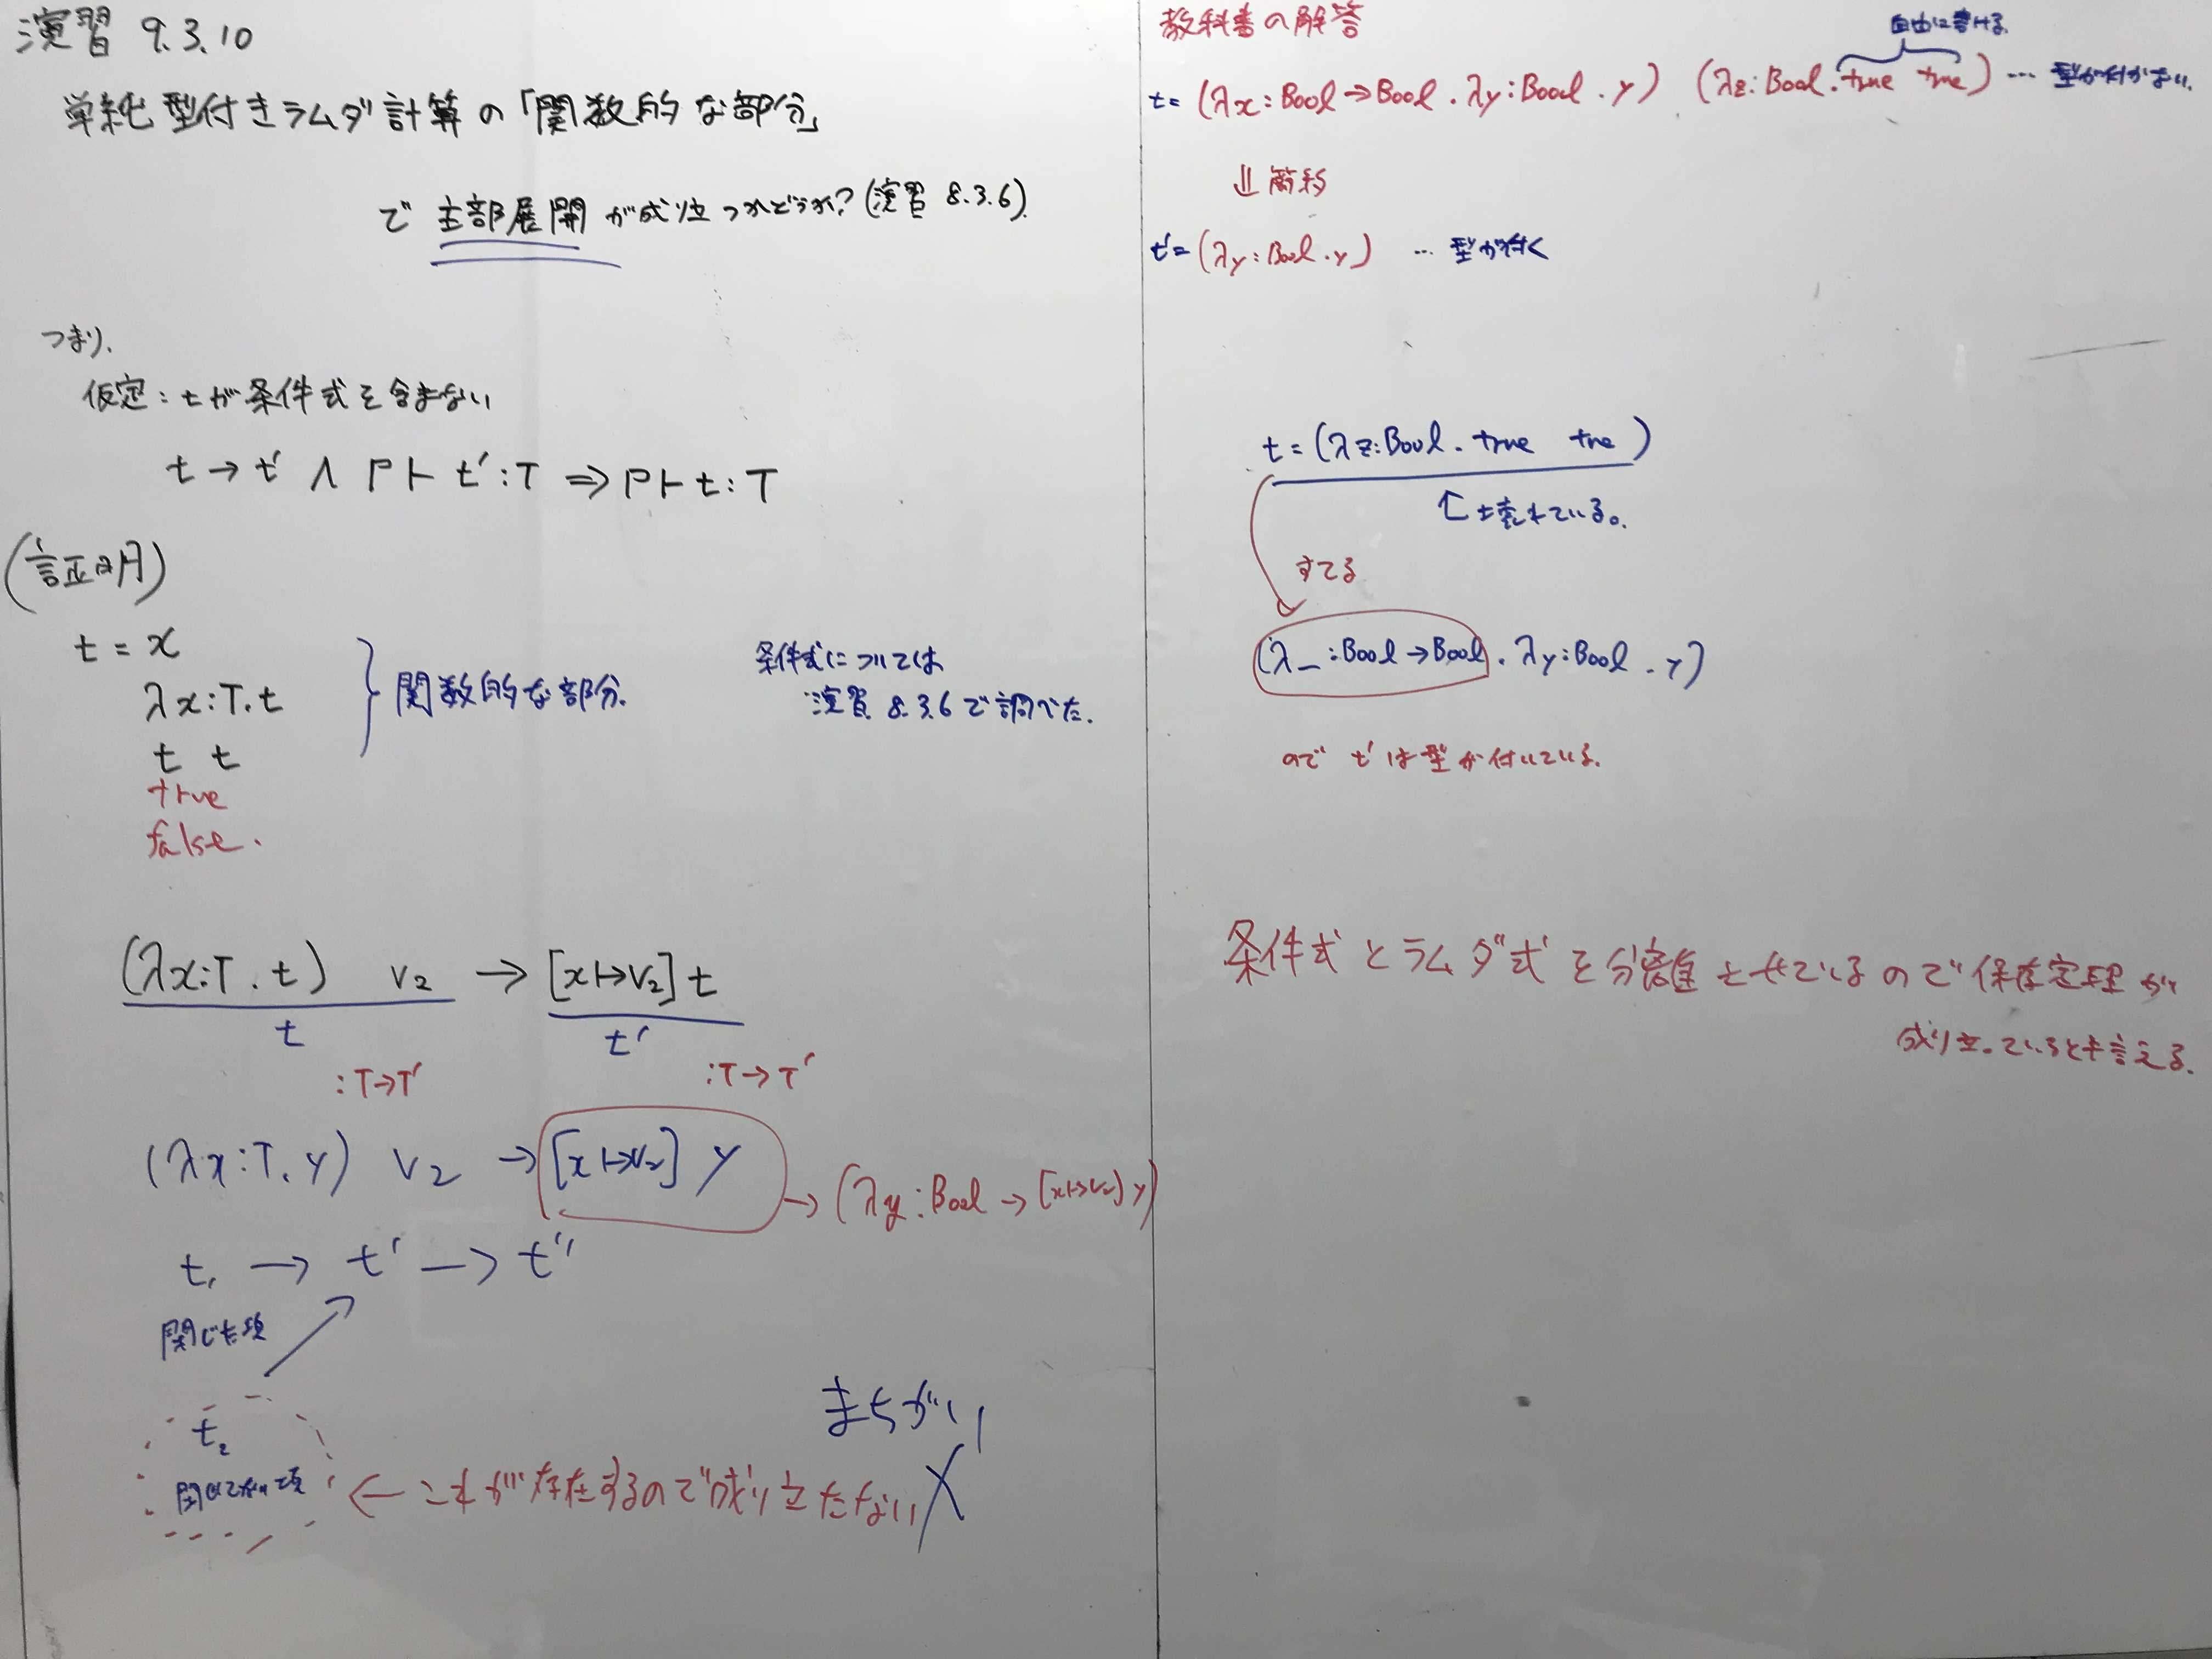 演習 9.3.10
単純型付きラムダ計算の「関数的な部分」
で 主部展開 が成り立つかどうか?(演習 8.3.6)
つまり、
仮定:tが条件式を含まない
t → t' ∧ Γ ⊢ t' : T ⇒ Γ ⊢ t : T
(証明)
t = x
λx:T.t
t t
true
false.
関数的な部分.
条件式については
演習 8.3.6で調べた.
(λx:T.t) v₂ → [x↦v₂] t
t t'
:T→T' :T→T'
(λx:T.y) v₂ → [x↦v₂] y → (λy:Bool → [x↦v₂] y)
t₁ → t' → t''
閉じた項
t₂
閉じてない項
← これが存在するので成り立たない
まちがい
教科書の解答
自由に書ける
t= (λx:Bool→Bool.λy:Bool.y) (λz:Bool.true true) … 型が付かない.
⇓ 簡約
t'= (λy:Bool.y) … 型が付く
t = (λz:Bool.true true)
↑ 壊れている。
すてる
(λ_:Bool→Bool.λy:Bool.y)
ので t'は型が付いている.
条件式とラムダ式を分離させているので保存定理が
成り立っているとも言える.